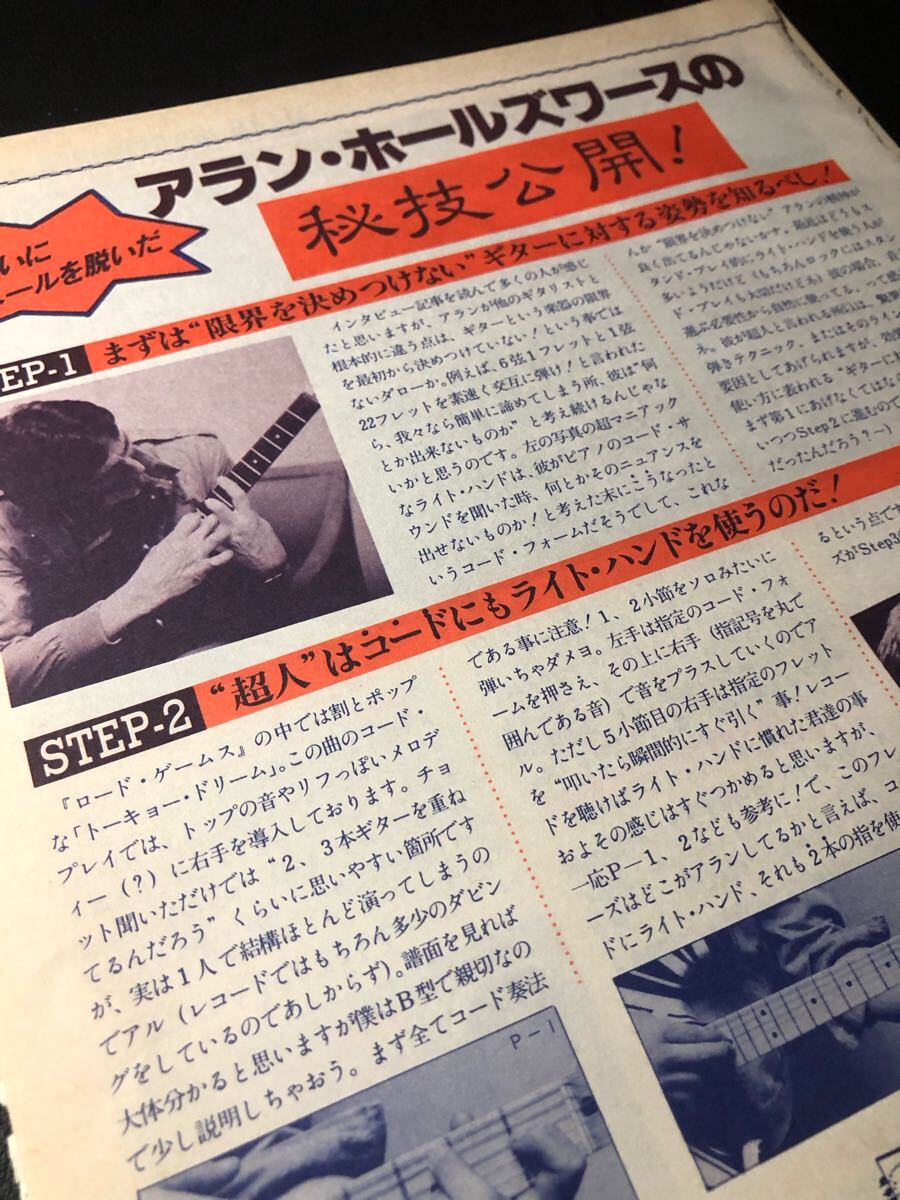 アラン・ホールズワースの
秘技公開!
いに
ールを脱いだ
EP-1 まずは“限界を決めつけない”ギターに対する姿勢を知るべし!
インタビュー記事を読んで多くの人が感じ
たと思いますが、アランが他のギタリストと
根本的に違う点は、ギターという楽器の限界
を最初から決めつけていない!という事では
ないダローか。例えば、6弦1フレットと1弦
22フレットを素速く交互に弾け!と言われた
ら、我々なら簡単に諦めてしまう所、彼は“何
とか出来ないものか”と考え続けるんじゃな
いかと思うのです。左の写真の超マニアック
なライト・ハンドは、彼がピアノのコード・サ
ウンドを聞いた時、何とかそのニュアンスを
出せないものか!と考えた末にこうなったと
いうコード・フォームだそうでして、これな
んか“限界を決めつけない”アランの精神が
良く出てるんじゃないかナ。最近はどうもス
タンド・プレイ的にライト・ハンドを使う人が
多いようだけど(もちろんロックにはスタン
ド・プレイも大切だけどネ)彼の場合、音
選ぶ必要性から自然に使ってる、って感
ネ。彼が超人と言われる所以は、驚異
弾きテクニック、またはそのライン
要因としてあげられますが、効
使い方に表われる“ギターに
まず第1にあげなくてはな
いつつStep2に進むので
だったんだろう?〜)
STEP-2 “超人”はコードにもライト・ハンドを使うのだ!
『ロード・ゲームス』の中では割とポップ
な「トーキョー・ドリーム」。この曲のコード・
プレイでは、トップの音やリフっぽいメロデ
ィー(?)に右手を導入しております。チョ
ット聞いただけでは“2、3本ギターを重ね
てるんだろう”くらいに思いやすい箇所です
が、実は1人で結構ほとんど演ってしまうの
でアル(レコードではもちろん多少のダビン
グをしているのであしからず)。譜面を見れば
大体分かると思いますが僕はB型で親切なの
で少し説明しちゃおう。まず全てコード奏法
である事に注意!1、2小節をソロみたいに
弾いちゃダメヨ。左手は指定のコード・フォ
ームを押さえ、その上に右手(指記号を丸で
囲んである音)で音をプラスしていくのでア
ル。ただし5小節目の右手は指定のフレット
を“叩いたら瞬間的にすぐ引く”事!レコー
ドを聴けばライト・ハンドに慣れた君達の事
およその感じはすぐつかめると思いますが、
一応P−1、2なども参考に!で、このフレ
ーズはどこがアランしてるかと言えば、コ
ードにライト・ハンド、それも2本の指を使
るという点です
ズがStep3
P-1